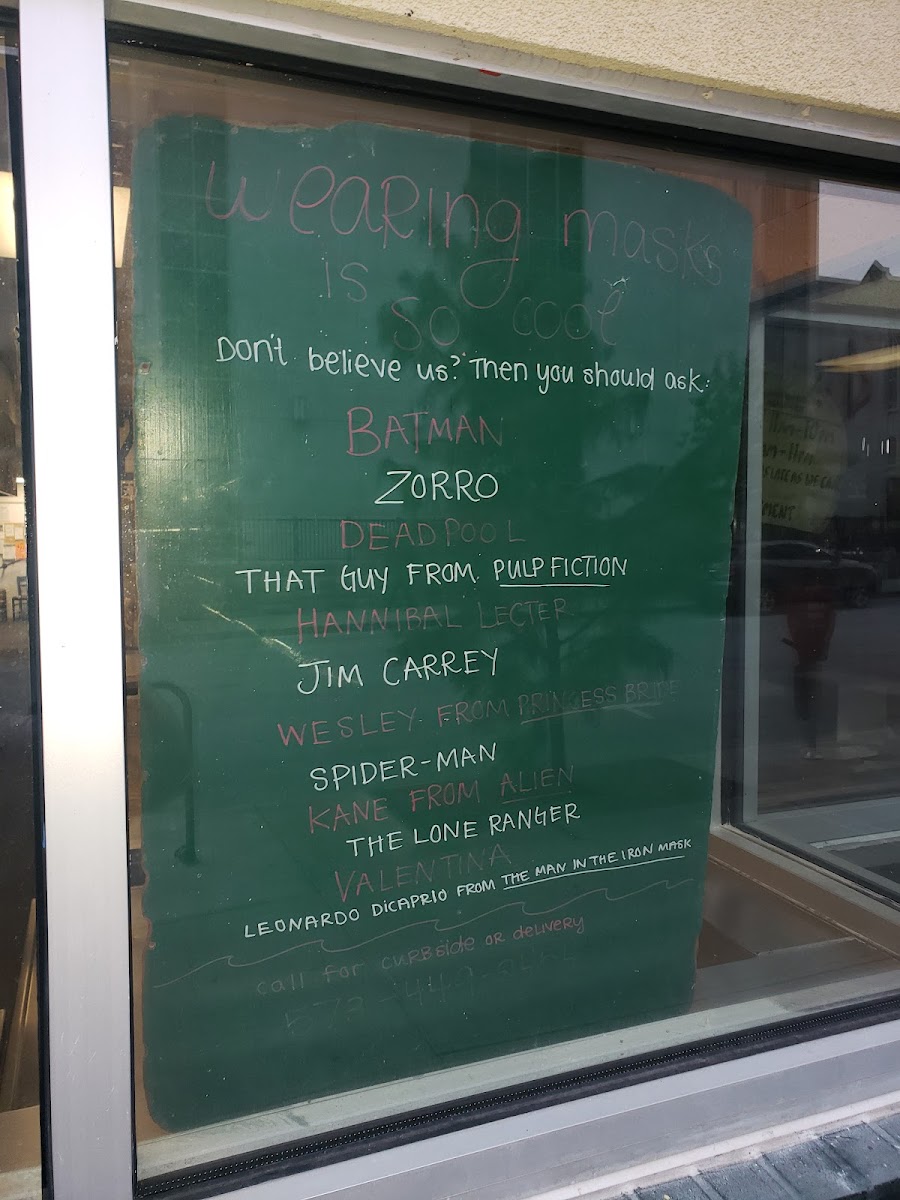 weaRing masks
is
so cool
Don't believe us? Then you should ask:
BATMAN
ZORRO
DEADPOOL
THAT GUY FROM PULP FICTION
HANNIBAL LECTER
JIM CARREY
WESLEY FROM PRINCESS BRIDE
SPIDER-MAN
KANE FROM ALIEN
THE LONE RANGER
VALENTINA
LEONARDO DiCAPRIO FROM THE MAN IN THE IRON MASK
call for cuRBside oR delivery
573-449-
11am-10pm